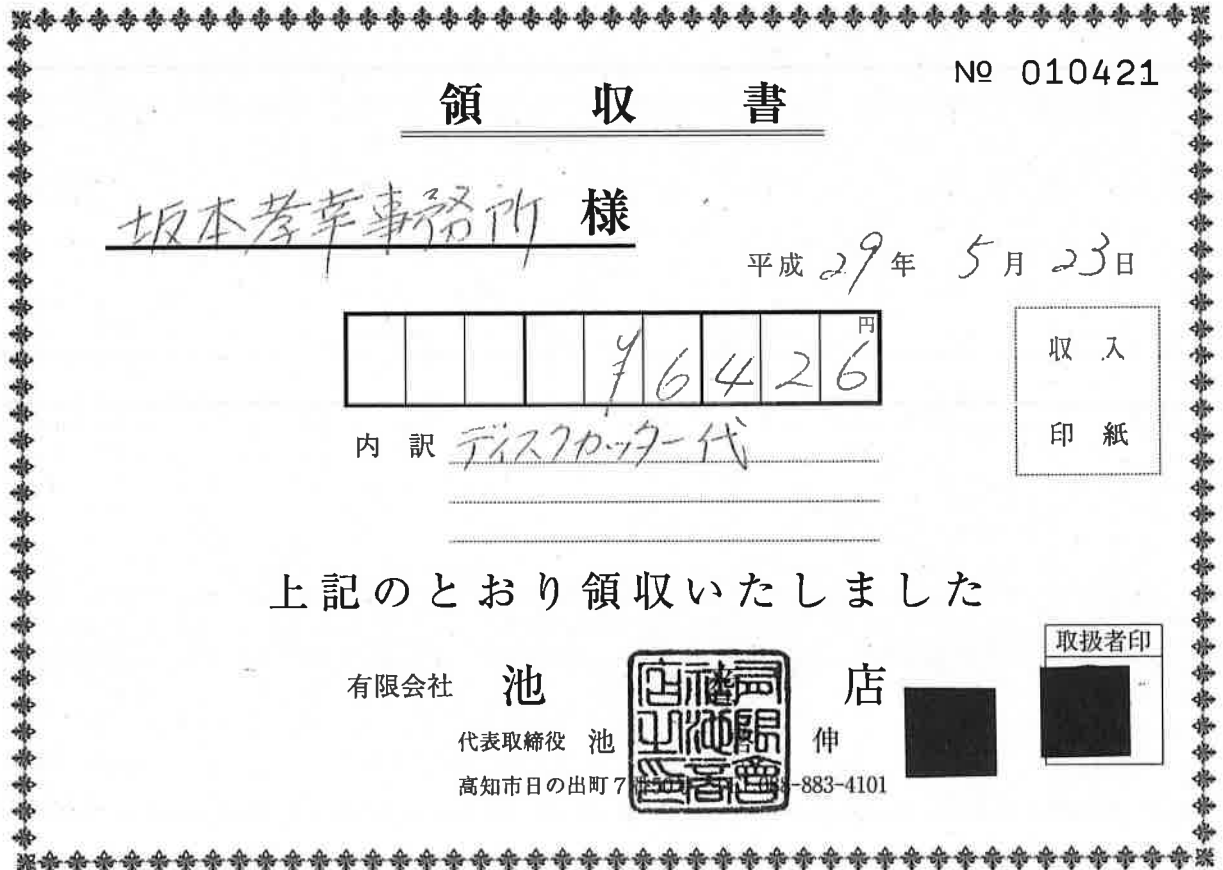 № 010421
領収書
坂本孝幸事務所 様
平成 29年 5月 23日
円
¥6426
収入
印紙
内訳 ディスクカッター代
上記のとおり領収いたしました
取扱者印
有限会社 池 店
代表取締役 池 伸
高知市日の出町7 -883-4101